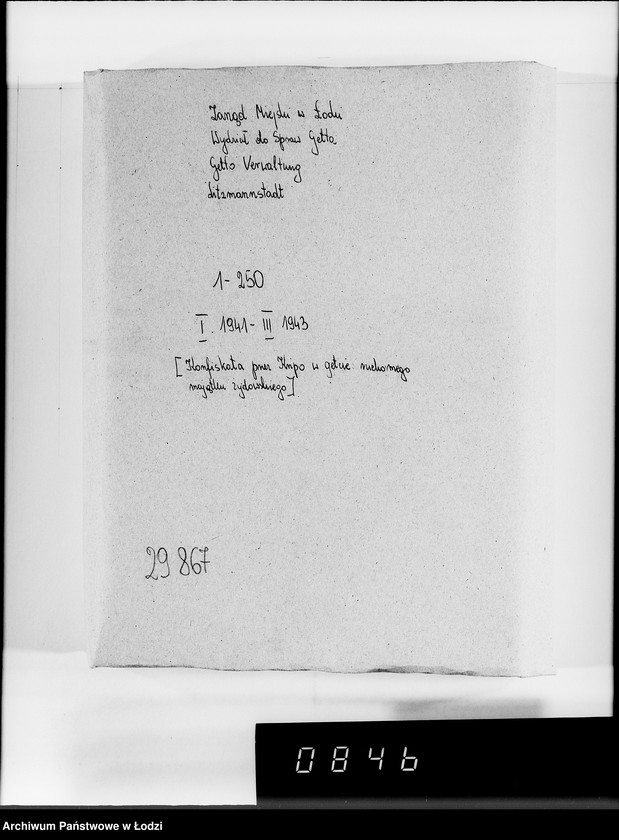 Zarząd Miejski w Łodzi
Wydział do Spraw Getta
Getto Verwaltung
Litzmannstadt
1-250
I. 1941-III 1943
[Konfiskata przez Kripo w getcie ruchomego
majątku żydowskiego]
29 867
0846
Archiwum Państwowe w Łodzi